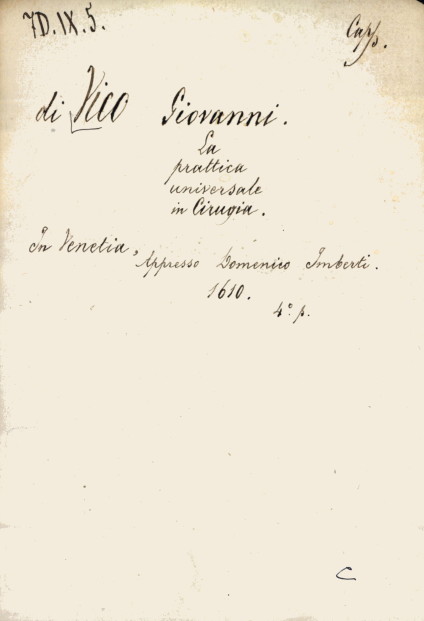 7D.IX.5.
Capp.
di Vico Giovanni.
La
prattica
universale
in Cirugia.
In Venetia, Appresso Domenico Imberti.
1610.
4° p.
C